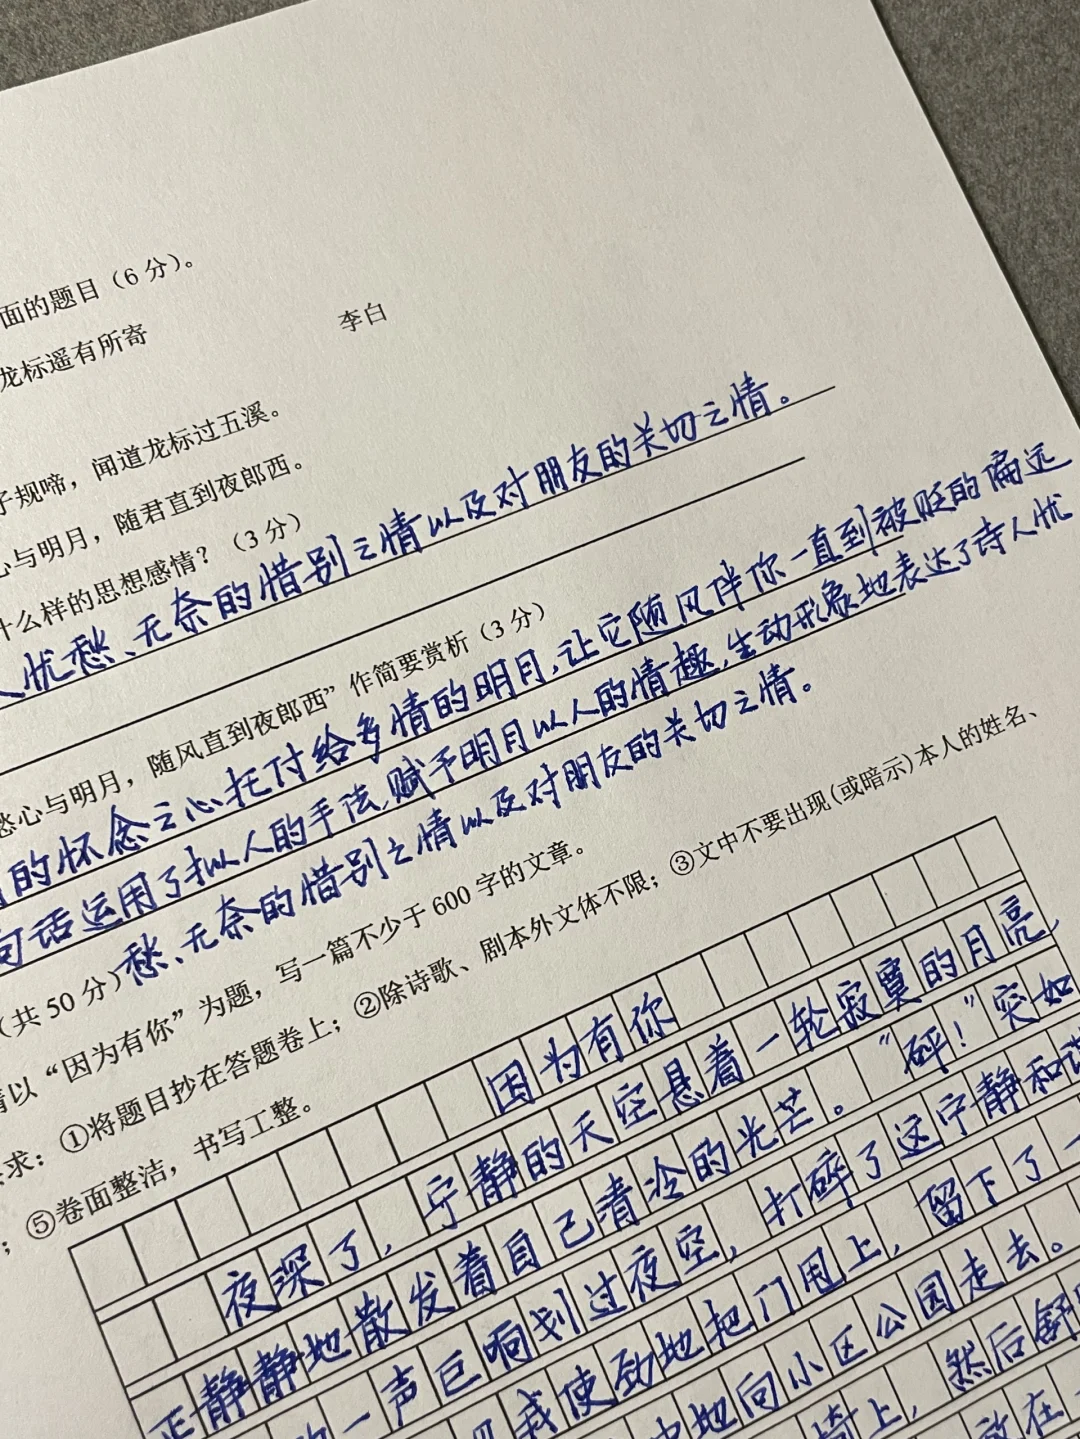 面的题目（6 分）。
龙标遥有所寄
李白
子规啼，闻道龙标过五溪。
心与明月，随君直到夜郎西。
什么样的思想感情？（3 分）
人忧愁、无奈的惜别之情以及对朋友的关切之情。
愁心与明月，随风直到夜郎西”作简要赏析（3 分）
的怀念之心托付给多情的明月，让它随风伴你一直到被贬的偏远
句话运用了拟人的手法，赋予明月以人的情趣，生动形象地表达了诗人忧
愁、无奈的惜别之情以及对朋友的关切之情。
（共 50 分）
请以“因为有你”为题，写一篇不少于 600 字的文章。
求：①将题目抄在答题卷上；②除诗歌、剧本外文体不限；③文中不要出现(或暗示)本人的姓名、
；⑤卷面整洁，书写工整。
因为有你
夜深了，宁静的天空悬着一轮寂寞的月亮，
正静静地散发着自己清冷的光芒。“砰！”突如
的一声巨响划过夜空，打碎了这宁静和
我使劲地把门甩上，留下了一
地向小区公园走去。
椅上，然后舒
放在